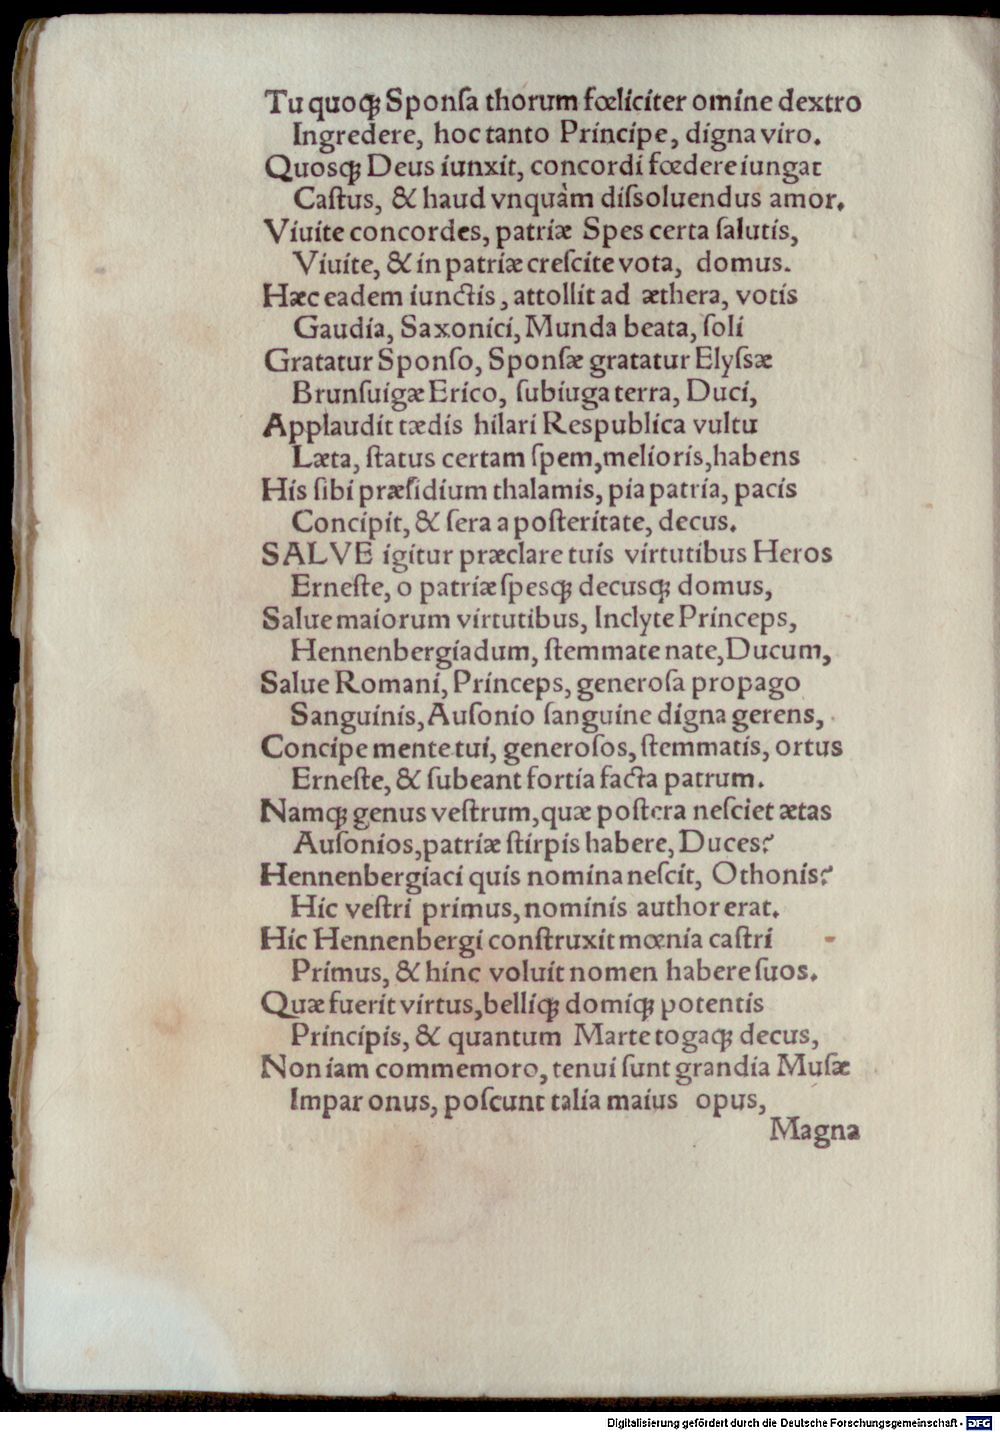 Tu quoqꝫ Sponſa thorum fœliciter omine dextro
Ingredere, hoc tanto Principe, digna viro.
Quosqꝫ Deus iunxit, concordi fœdere iungat
Caſtus, & haud vnquàm diſsoluendus amor.
Viuite concordes, patriæ Spes certa ſalutis,
Viuite, & in patriæ creſcite vota, domus.
Hæc eadem iunctis, attollit ad æthera, votis
Gaudia, Saxonici, Munda beata, ſoli
Gratatur Sponſo, Sponſæ gratatur Elyſsæ
Brunſuigæ Erico, ſubiuga terra, Duci,
Applaudit tædis hilari Respublica vultu
Læta, ſtatus certam ſpem, melioris, habens
His ſibi præſidium thalamis, pia patria, pacis
Concipit, & ſera a poſteritate, decus.
SALVE igitur præclare tuis virtutibus Heros
Erneſte, o patriæ ſpesqꝫ decusqꝫ domus,
Salue maiorum virtutibus, Inclyte Princeps,
Hennenbergiadum, ſtemmate nate, Ducum,
Salue Romani, Princeps, generoſa propago
Sanguinis, Auſonio ſanguine digna gerens,
Concipe mente tui, generoſos, ſtemmatis, ortus
Erneſte, & ſubeant fortia facta patrum.
Namqꝫ genus veſtrum, quæ poſtera neſciet ætas
Auſonios, patriæ ſtirpis habere, Duces?
Hennenbergiaci quis nomina neſcit, Othonis?
Hic veſtri primus, nominis author erat.
Hic Hennenbergi conſtruxit mœnia caſtri
Primus, & hinc voluit nomen habere ſuos.
Quæ fuerit virtus, belliqꝫ domiqꝫ potentis
Principis, & quantum Marte togaqꝫ decus,
Non iam commemoro, tenui ſunt grandia Muſæ
Impar onus, poſcunt talia maius opus,
Magna
Digitalisierung gefördert durch die Deutsche Forschungsgemeinschaft - DFG